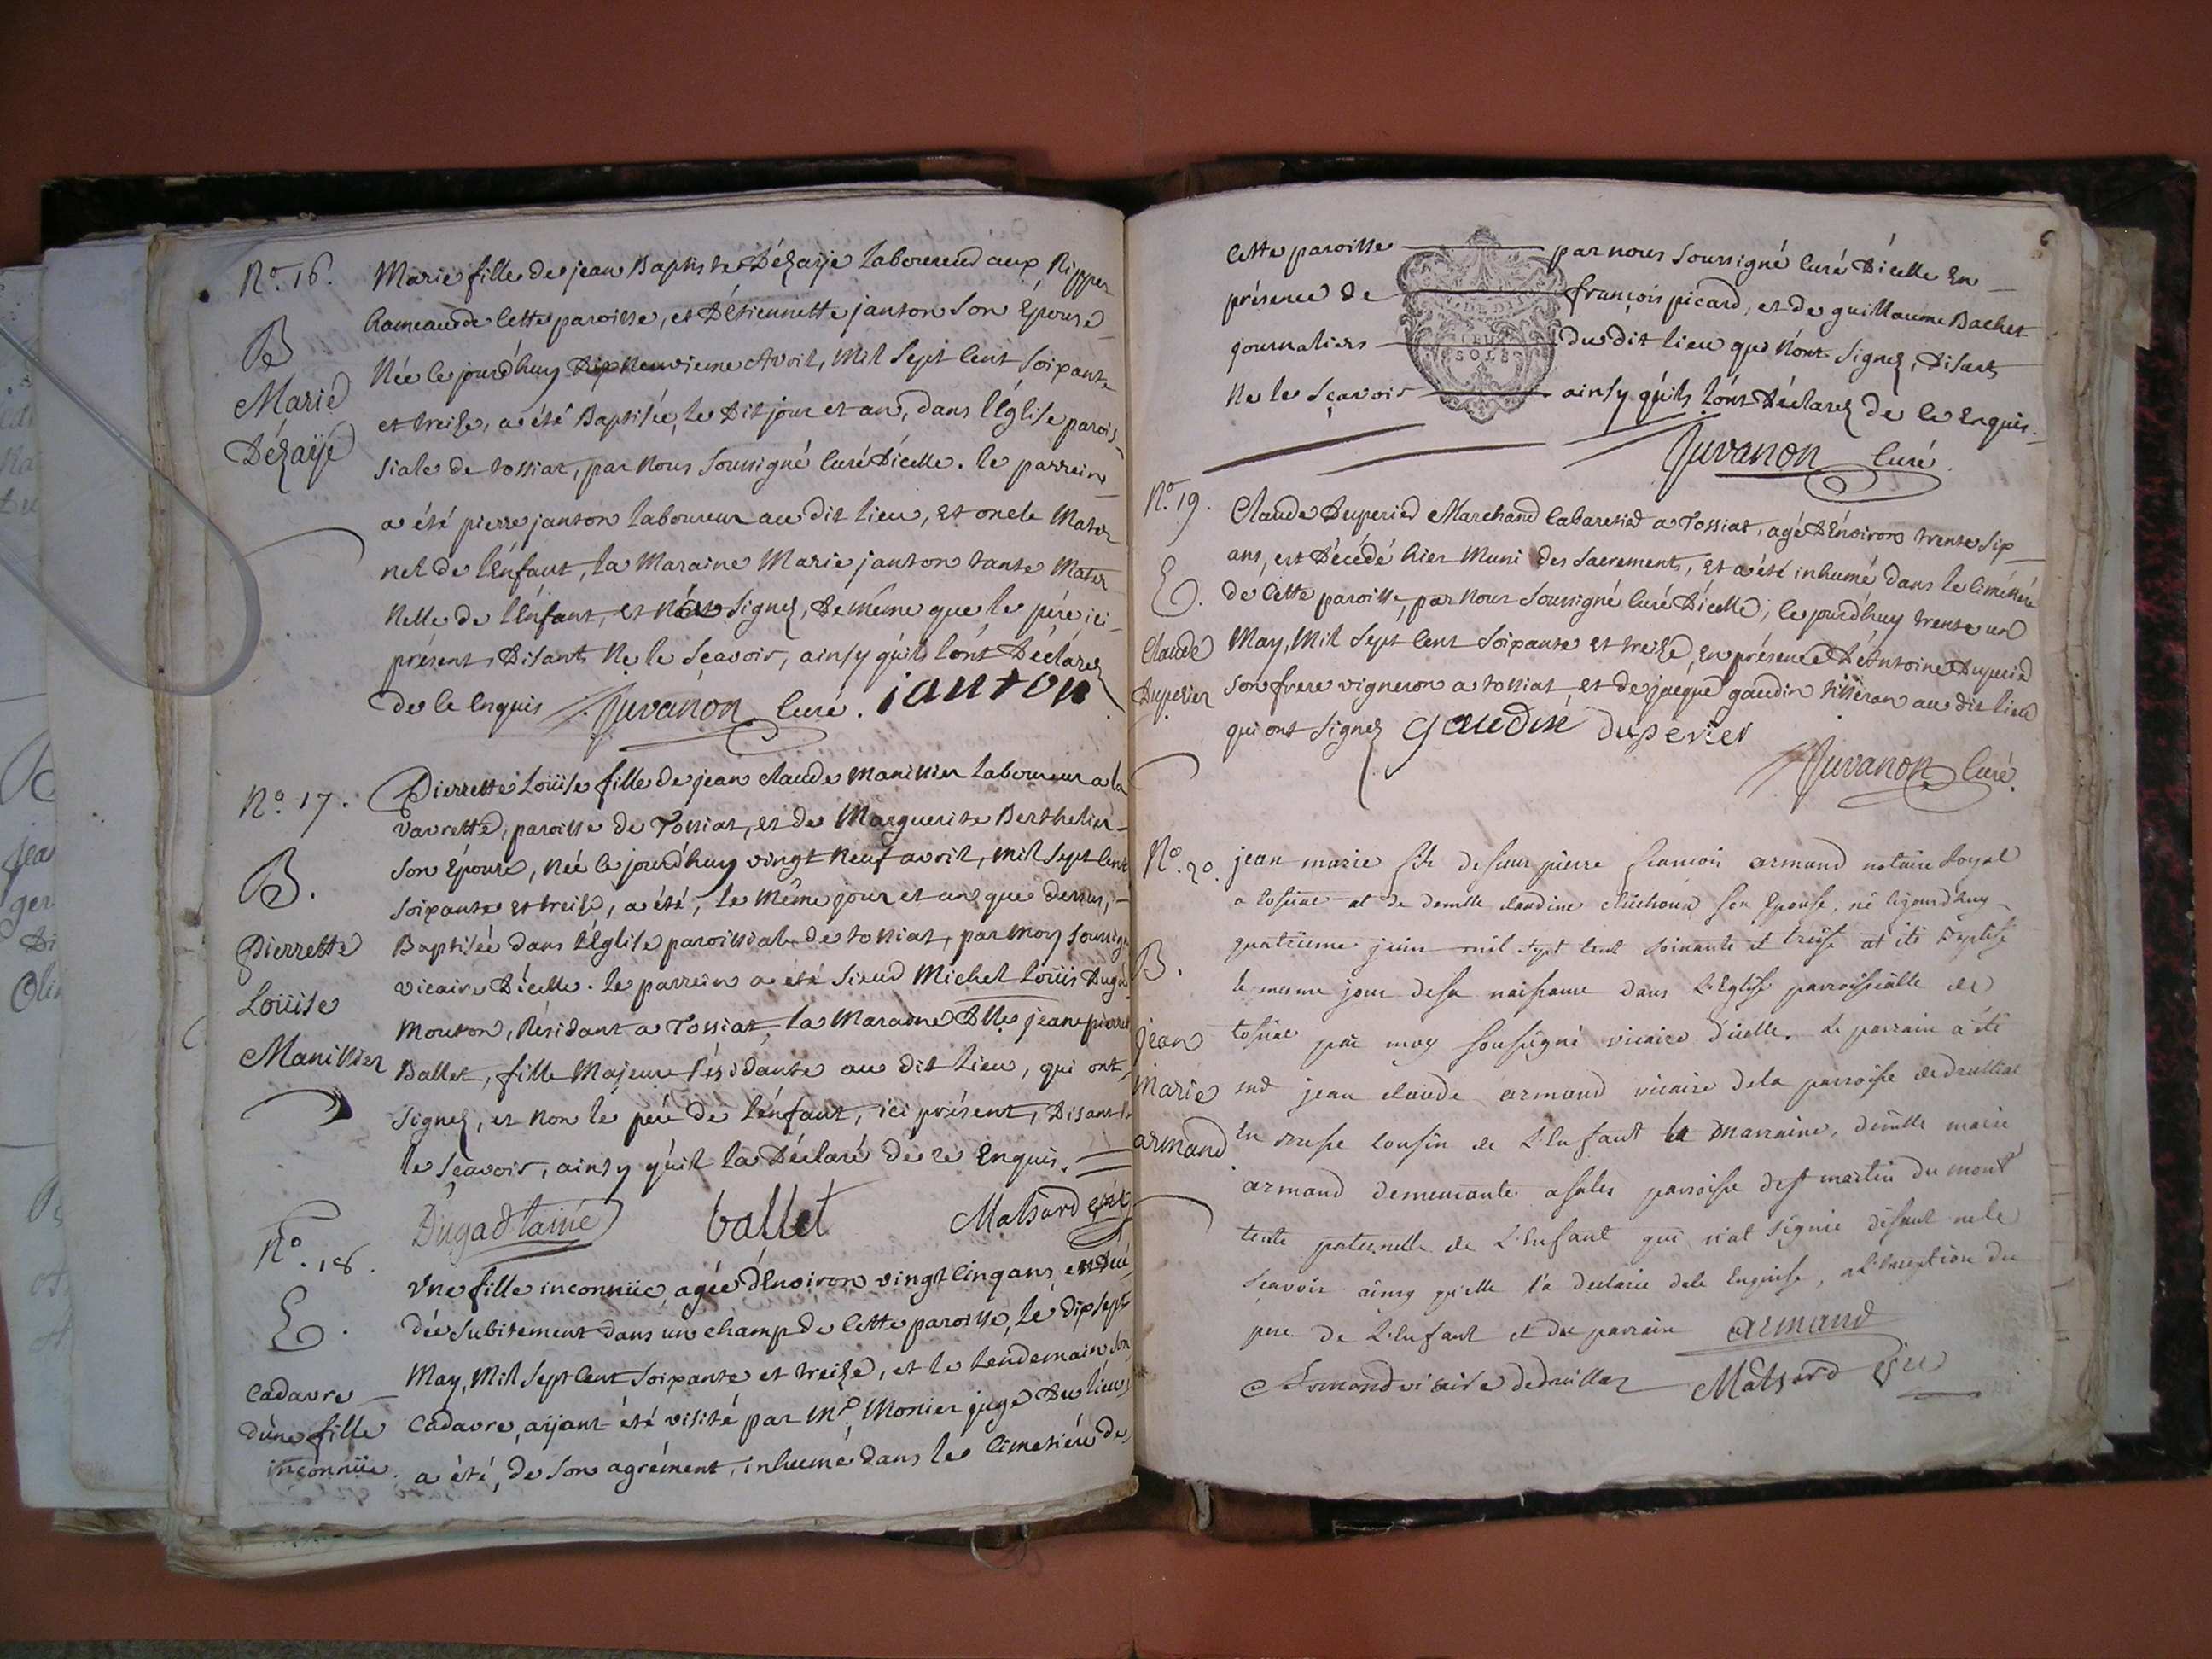 No. 16.
B
Marie
Dézaije
Marie fille de jean Baptiste Dézaije Laboureur aux Rippes
hameau de Cette paroisse, et D'étiennette janton Son Épouse
Née le jourd'huy Dixneuvieme Avril, Mil Sept Cent Soixante
et treize, a été Baptisée, le Dit jour et an, dans l'Église parois
siale de tossiat, par Nous Soussigné Curé D'icelle. le parrein
a été pierre janton Laboureur au dit lieu, et oncle Mater
nel de l'Énfant, la Maraine Marie janton tante Mater
nelle de l'Énfant, et N'ont Signez, De même que le pére ici
présent Disants Ne le Sçavoir, ainsy qu'ils l'ont Déclarez
de Ce Enquis Juvanon Curé. janton
No. 17.
B.
Pierrette
Loüise
Manissier
Pierrette Loüise fille de jean claude Manissier Laboureur a la
Vavrette, paroisse de Tossiat, et de Marguerite Berthelier
Son Épouse, Née le jourd'huy vingt Neuf avril, Mil Sept Cent
Soixante et treize, a été, le Même jour et an que dessus,
Baptisée dans l'Église paroissiale de tossiat, par Moy Soussigné
vicaire D'icelle. le parrein a été Sieur Michel Loüis Dugad
Mouton, Résidant a Tossiat, la Maraine Dlle jeane pierrette
Ballet, fille Majeure Résidante au dit Lieu, qui ont
Signez, et Non le pére de l'énfant, ici présent, Disant Ne
le Sçavoir, ainsy qu'il la Déclaré de Ce Enquis.
Dugad lainé ballet Matsard vire
No. 18.
E.
Cadavre
d'une fille
inconnüe.
Une fille inconnüe, agée d'Environ vingt Cinq ans, est Décé
dée Subitement dans un champ de Cette paroisse, le dix sept
May, Mil Sept Cent Soixante et treize, et le Lendemain Son
Cadavre, aÿant été visité par Mr. Monier juge Du lieu
a été, de Son agrément, inhumé dans le Cimetiére de
6
Cette paroisse par nous Soussigné Curé D'icelle En
présence de françois picard, et de guillaume Bachet
journaliers du dit lieu qui N'ont Signez, Disants
Ne le Sçavoir ainsy qu'ils l'ont Déclarez de Ce Enquis.
DEUX
SOLS
Juvanon Curé.
No. 19.
E.
Claude
Duperier
Claude Duperier Marchand Cabaretier a Tossiat, agé D'Énviron trente Six
ans, est Décédé hier Muni des Sacrements, et a été inhumé dans le Cimétiére
de Cette paroisse, par Nous Soussigné Curé D'icelle, le jourd'huy trente un
May, Mil Sept Cent Soixante et treize, en présence D'Antoine Duperier
Son frere vigneron a tossiat et de jacque gaudin tisseran au dit lieu
qui ont Signez gaudin duperier
Juvanon Curé.
No. 20.
B.
jean
marie
armand
jean marie fils de sieur pierre françois armand notaire Royal
a tossiat et de demlle claudine son Epouse, né lejourdhuy
quatrieme juin mil sept cent soixante et treize at été Baptisé
le mesme jour de sa naissance dans L'Eglise parroissialle de
tossiat par moy soussigné vicaire d'icelle. Le parrain a été
jean claude armand vicaire dela parroisse de druillat
cousin de L'Enfant la Marraine, demlle marie
armand demeurante a salles parroisse de st martin du mont
tente paternelle de L'Enfant qui n'at signée disant ne le
scavoir ainsy qu'elle l'a declarée dele Enquise, a L'exception du
pere de L'Enfant et du parrain armand
Armand vicaire de druillat Matsard vire